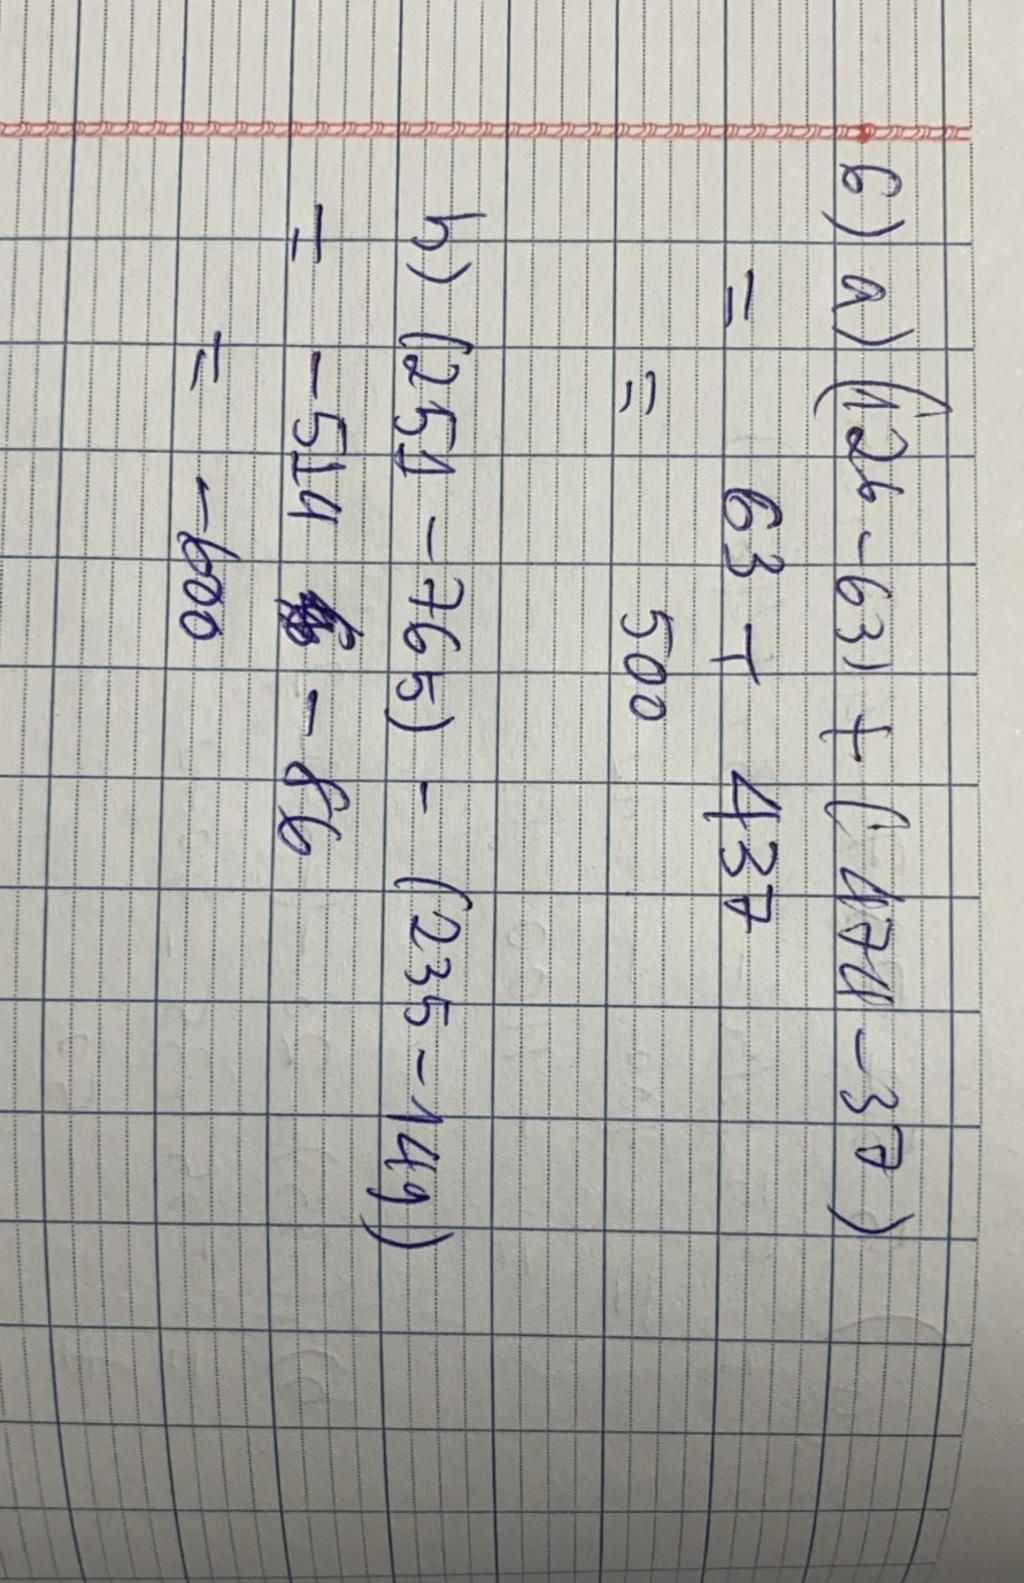 6) a) (126 - 63) + (474 - 37)
= 63 + 437
= 500
b) (251 - 765) - (235 - 149)
= -514 - 86
= -600